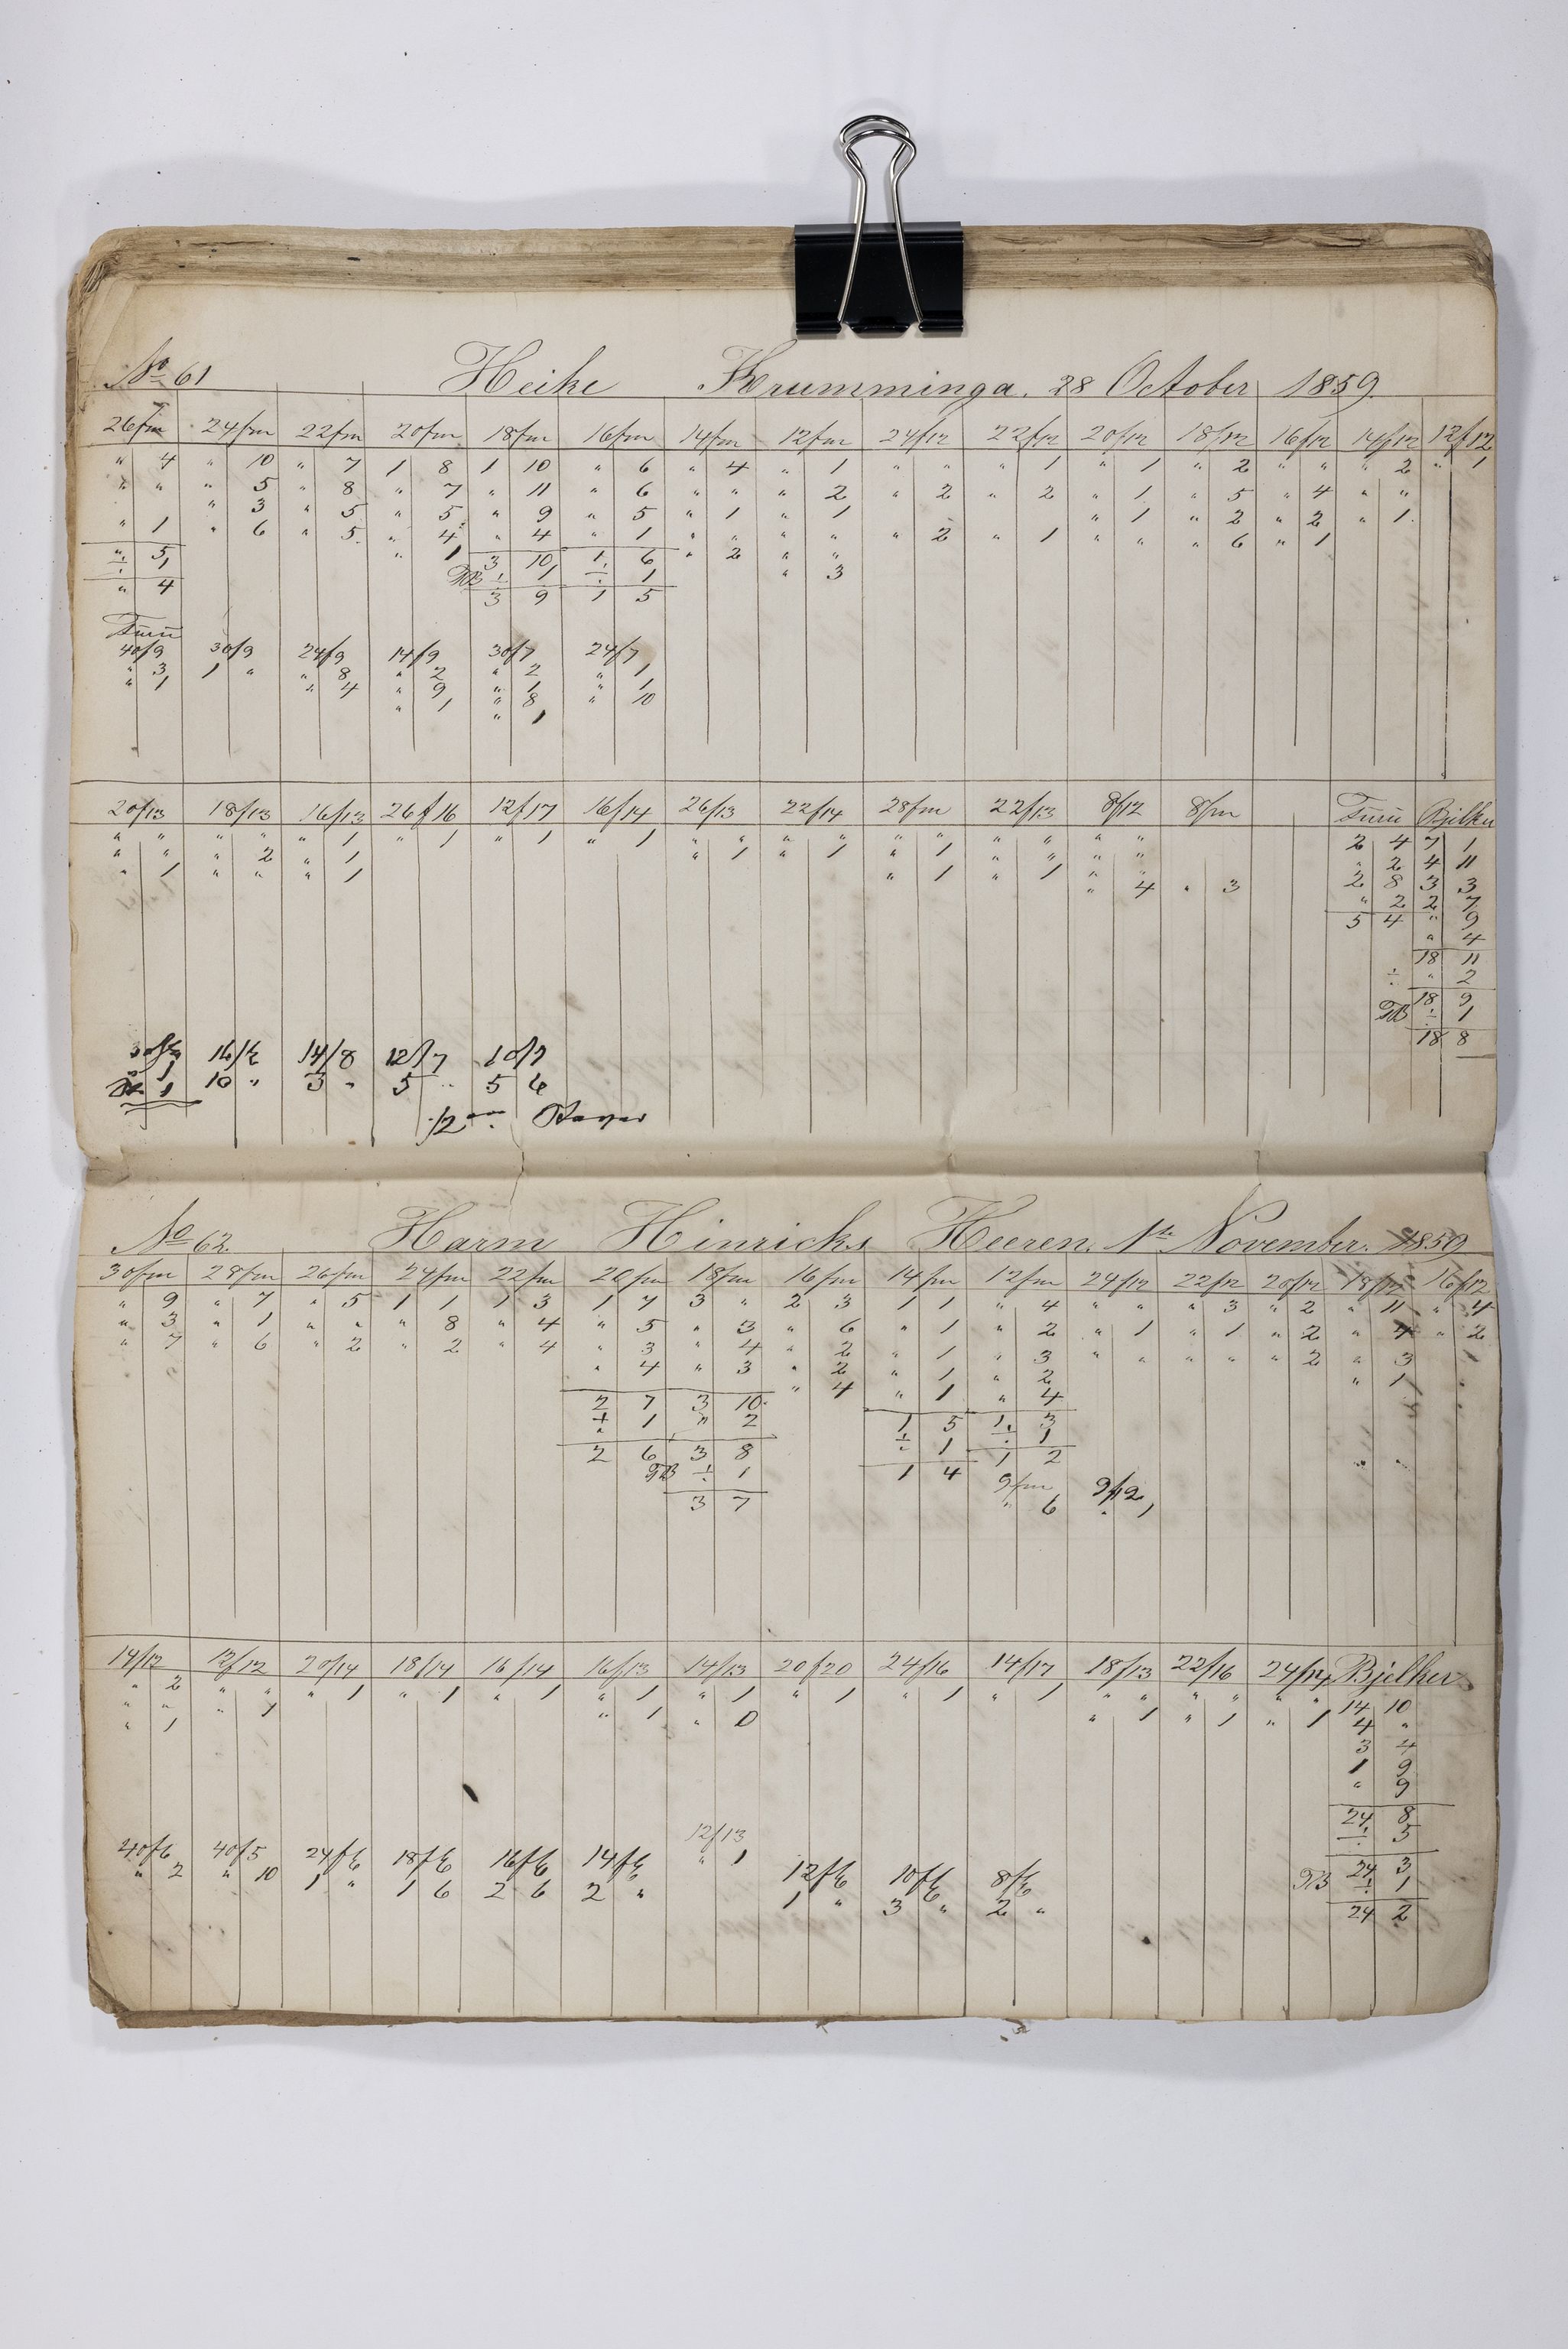 No 61 Heike Krumminga. 28 October 1859.
26/fm 24/fm 22/fm 20/fm 18/fm 16/fm 14/fm 12/fm 24/12 22/12 20/12 18/12 16/12 14/12 12/12
" 4 " 10 " 7 1 8 1 10 " 6 " 4 " 1 " " " 1 " 1 " 2 " " " 2 " 1
" " " 5 " 8 " 7 " 11 " 6 " " " 2 " 2 " 2 " 1 " 5 " 4 " "
" 3 " 5 " 5 " 9 " 5 " 1 " 1 " 1 " 2 " 2 " 1
" 1 " 6 " 5 " 4 " 4 " 1 " " " " " 2 " 1 " " " 6 " 1
" 5 " 1 3 10 1 6 " 2 " "
÷ 1 ÷ 1 ÷ 1 " 3
" 4 3 9 1 5
40/9 30/9 24/9 14/9 30/7 24/7
" 3 1 " " 8 " 2 " 2 " 1
" 1 " 4 " 9 " 1 " 1
" 1 " 8 " 10
" 1
20/13 18/13 16/13 26/16 12/17 16/14 26/13 22/14 28/fm 22/13 8/12 8/fm
" " " " " 1 " 1 " 1 " 1 " " " " " " " " " " 2 4 7 1
" " " 2 " 1 " 1 " 1 " 1 " " " " " 2 4 11
" 1 " " " 1 " 1 " 1 " " 2 8 3 3
" 4 " 3 " 2 2 7
5 4 " 9
" 4
18 11
÷ " 2
18 9
÷ 1
18 8
14/8 12/7 10/7
1
1 10 " 3 " 5 " 5 6
No 62. Harm Hinrichs Heeren. 1te November. 1859
30/fm 28/fm 26/fm 24/fm 22/fm 20/fm 18/fm 16/fm 14/fm 12/fm 24/12 22/12 20/12 18/12 16/12
" 9 " 7 " 5 1 1 1 3 1 7 3 " 2 3 1 1 " 4 " " " 3 " 2 " 11 " 4
" 3 " 1 " " " 8 " 4 " 5 " 3 " 6 " 1 " 2 " 1 " 1 " 2 " 4 " 2
" 7 " 6 " 2 " 2 " 4 " 3 " 4 " 2 " 1 " 3 " " " " " 2 " 3
" 4 " 3 " 2 " 1 " 2 " 1
" 4 " 1 " 4
2 7 3 10
÷ 1 " 2 1 5 1 3
÷ 1 ÷ 1
2 6 3 8 1 4 1 2
÷ 1
3 7
9/fm 9/12
" 6 " 1
14/12 12/12 20/14 18/14 16/14 16/13 14/13 20/20 24/16 14/17 18/13 22/16 Bjelker
" 2 " " " 1 " 1 " 1 " 1 " 1 " 1 " 1 " 1 " " " " " "
" " " 1 " 1 " 0 " 1 " 1 " 1 14 10
" 1 4 "
3 4
1 9
" 9
24 8
÷ 5
24 3
÷ 1
24 2
12/13
" 1
40/6 40/5 24/6 18/6 16/6 14/6 12/6 10/6 8/6
" 2 " 10 1 " 1 6 2 6 2 " 1 " 3 " 2 "